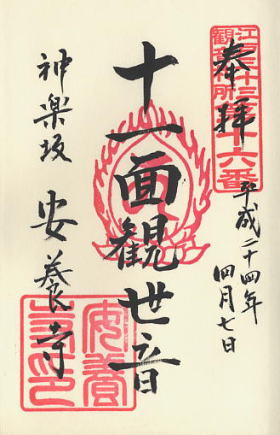 奉拝
江戸三十三
観音札所
第十六番
平成二十四年
四月七日
十一面観世音
神楽坂
安養寺
安養
寺印